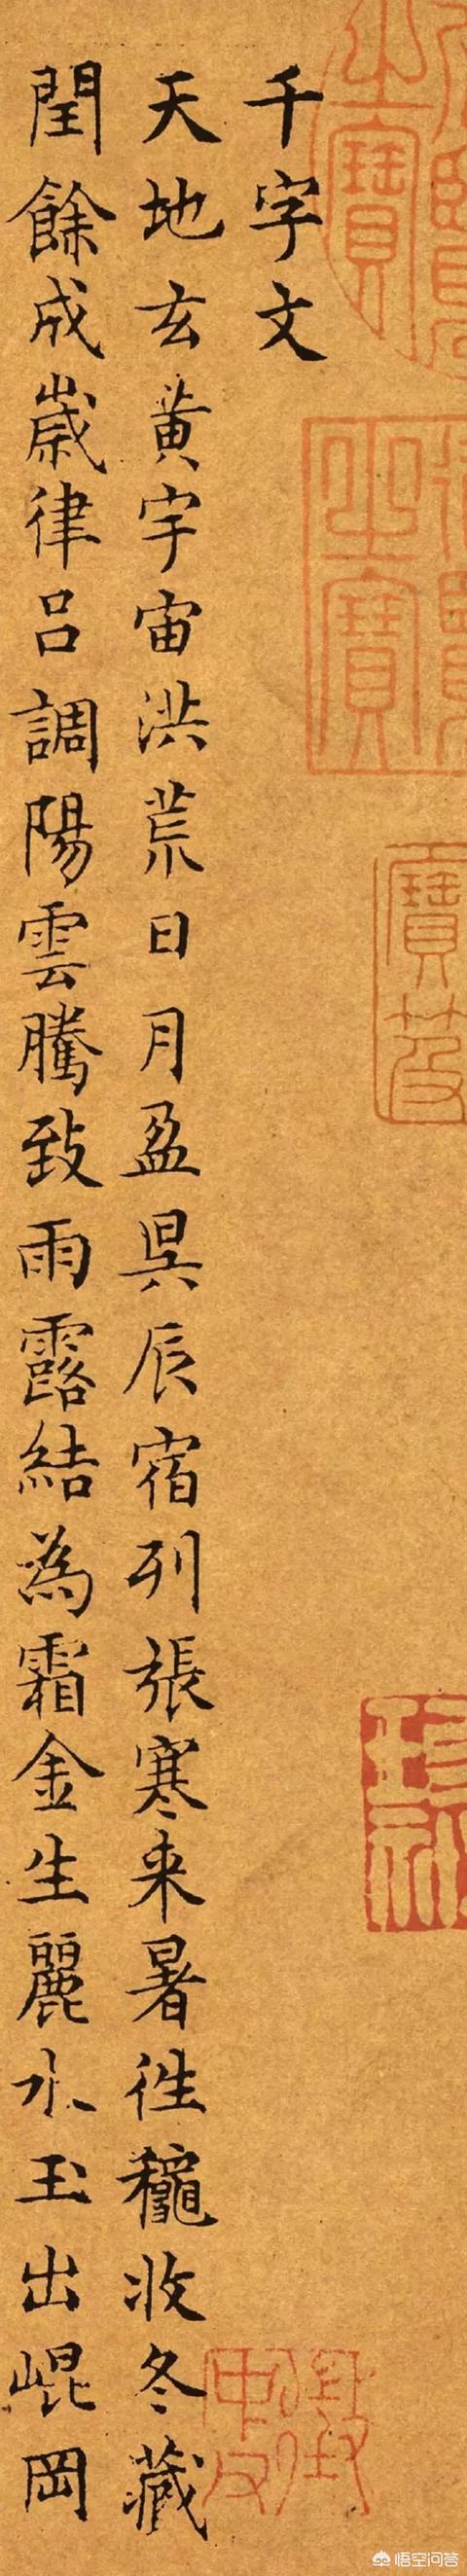 千字文
天地玄黄宇宙洪荒日月盈昃辰宿列張寒来暑徃穐收冬藏
閏餘成歲律吕調陽雲騰致雨露結為霜金生麗水玉出崐岡
之寶
之寶
寶笈
悟空问答